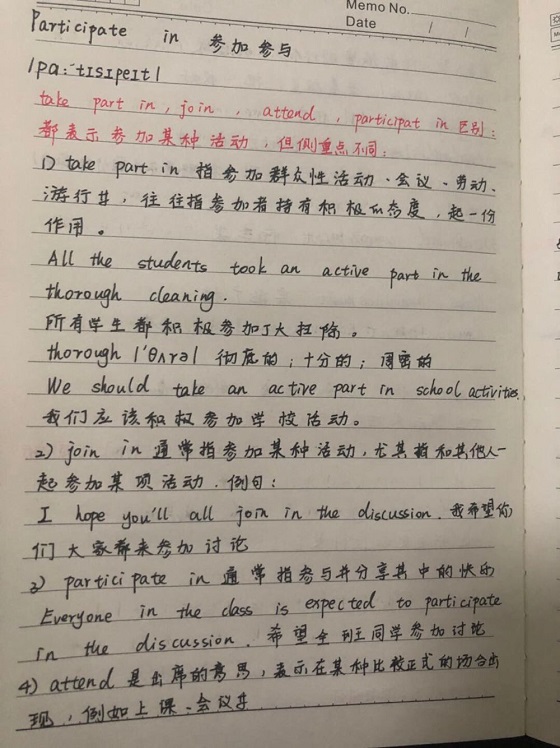 Memo No.
Date / /
Participate in 参加参与
/pɑːˈtɪsɪpeɪt/
take part in, join, attend, participat in 区别:
都表示参加某种活动,但侧重点不同:
1) take part in 指参加群众性活动、会议、劳动、
游行等,往往指参加者持有积极的态度,起一份
作用。
All the students took an active part in the
thorough cleaning.
所有学生都积极参加了大扫除。
thorough |'θʌrə| 彻底的;十分的;周密的
We should take an active part in school activities.
我们应该积极参加学校活动。
2) join in 通常指参加某种活动,尤其指和其他人一
起参加某项活动.例句:
I hope you'll all join in the discussion. 我希望你
们大家都来参加讨论
3) participate in 通常指参与并分享其中的快的
Everyone in the class is expected to participate
in the discussion. 希望全班同学参加讨论
4) attend 是出席的意思,表示在某种比较正式的场合出
现,例如上课、会议等